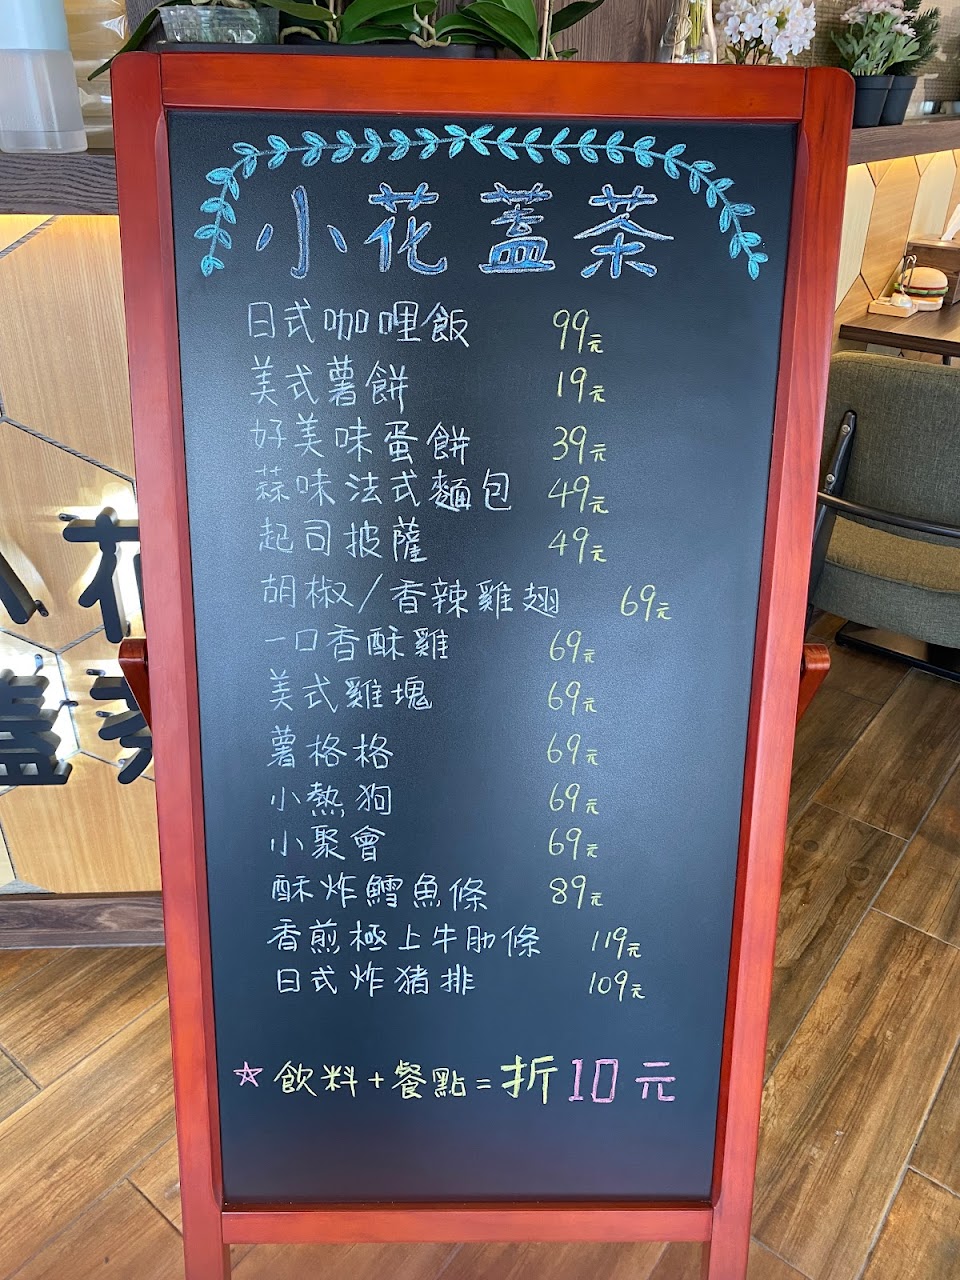 小花蓋茶
日式咖哩飯 99元
美式薯餅 19元
好美味蛋餅 39元
蒜味法式麵包 49元
起司披薩 49元
胡椒/香辣雞翅 69元
一口香酥雞 69元
美式雞塊 69元
薯格格 69元
小熱狗 69元
小聚會 69元
酥炸鱈魚條 89元
香煎極上牛肋條 119元
日式炸猪排 109元
☆飲料+餐點=折10元